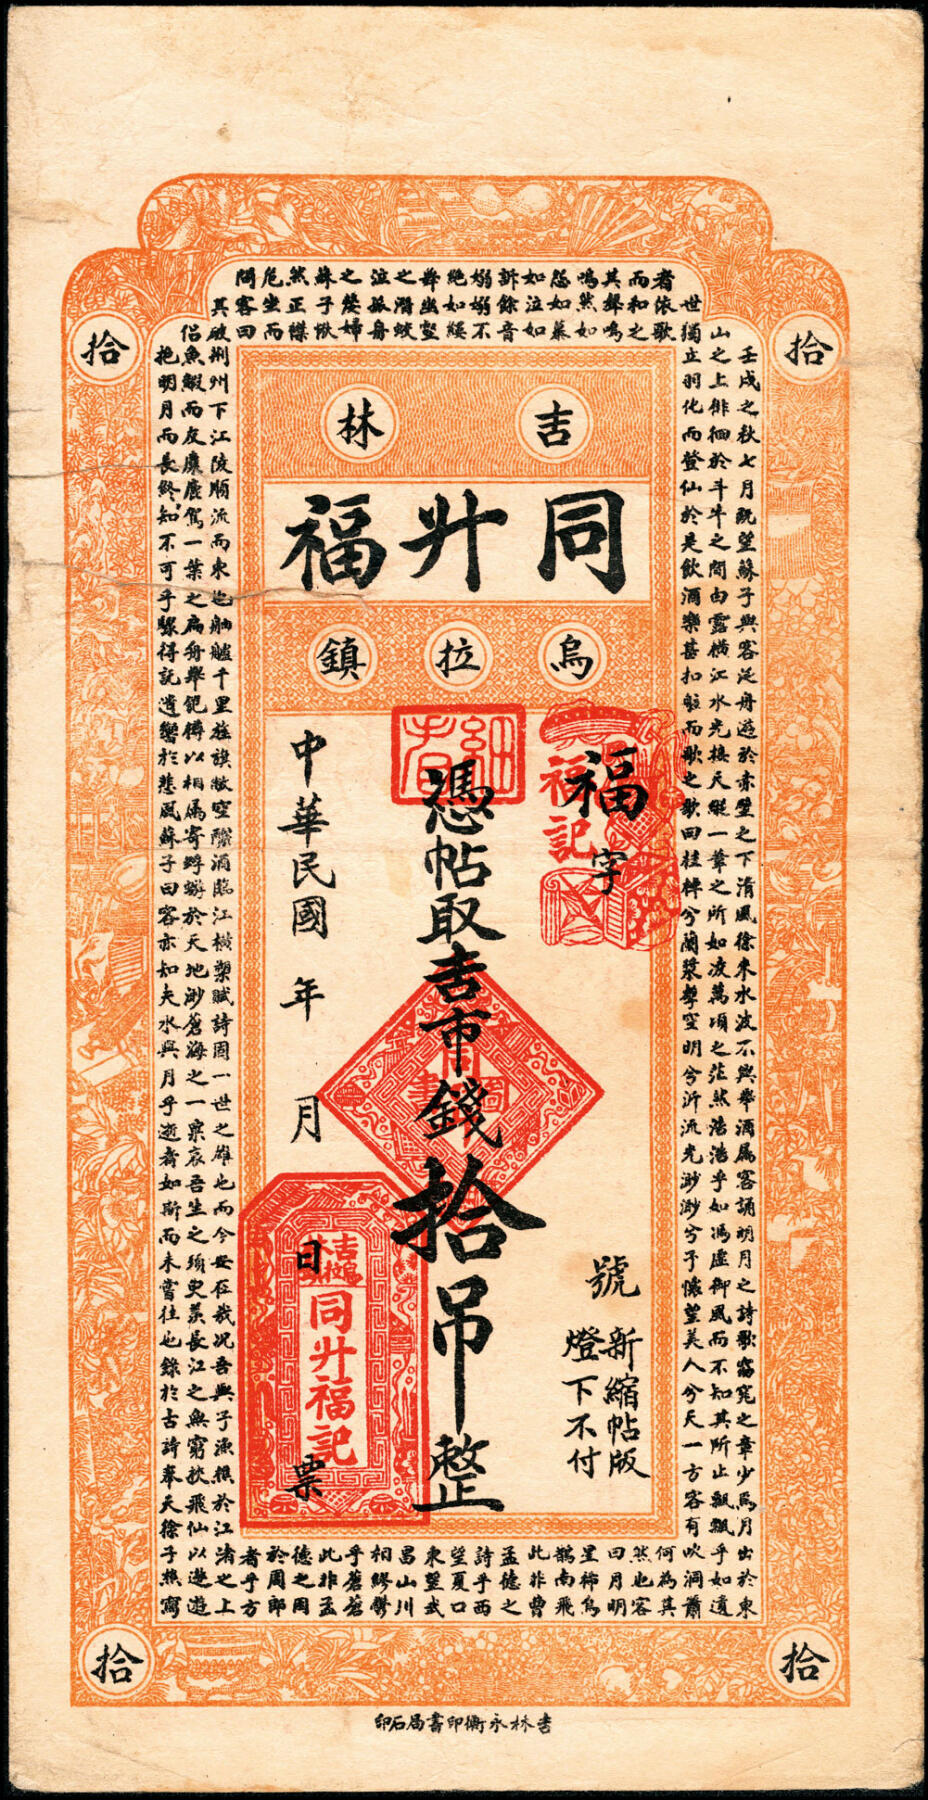 吉林
同升福
烏拉鎮
拾
拾
拾
拾
福字
號
新縮帖版
燈下不付
憑帖取吉市錢拾吊整
中華民國 年 月 日票
福記
同升福記
壬戌之秋七月既望蘇子與客泛舟遊於赤壁之下清風徐來水波不興舉酒屬客誦明月之詩歌窈窕之章少焉月出於東
山之上徘徊於斗牛之間白露橫江水光接天縱一葦之所如凌萬頃之茫然浩浩乎如馮虛御風而不知其所止飄飄乎如遺
世獨立羽化而登仙於是飲酒樂甚扣舷而歌之歌曰桂棹兮蘭槳擊空明兮泝流光渺渺兮予懷望美人兮天一方客有吹洞簫
者依歌
而和之
其聲嗚
嗚然如
怨如慕
如泣如
訴餘音
嫋嫋不
絕如縷
舞幽壑
之潛蛟
泣孤舟
之嫠婦
蘇子愀
然正襟
危坐而
問客曰
何為其
然也客
曰月明
星稀烏
鵲南飛
此非曹
孟德之
詩乎西
望夏口
東望武
昌山川
相繆鬱
乎蒼蒼
此非孟
德之困
於周郎
者乎方
其破荊州下江陵順流而東也舳艫千里旌旗蔽空釃酒臨江橫槊賦詩固一世之雄也而今安在哉況吾與子漁樵於江渚之上
侶魚鰕而友麋鹿駕一葉之扁舟舉匏樽以相屬寄蜉蝣於天地渺蒼海之一粟哀吾生之須臾羨長江之無窮挾飛仙以遨遊
抱明月而長終知不可乎驟得託遺響於悲風蘇子曰客亦知夫水與月乎逝者如斯而未嘗往也錄於古詩奉天徐子燕寫
吉林永衡印書局石印